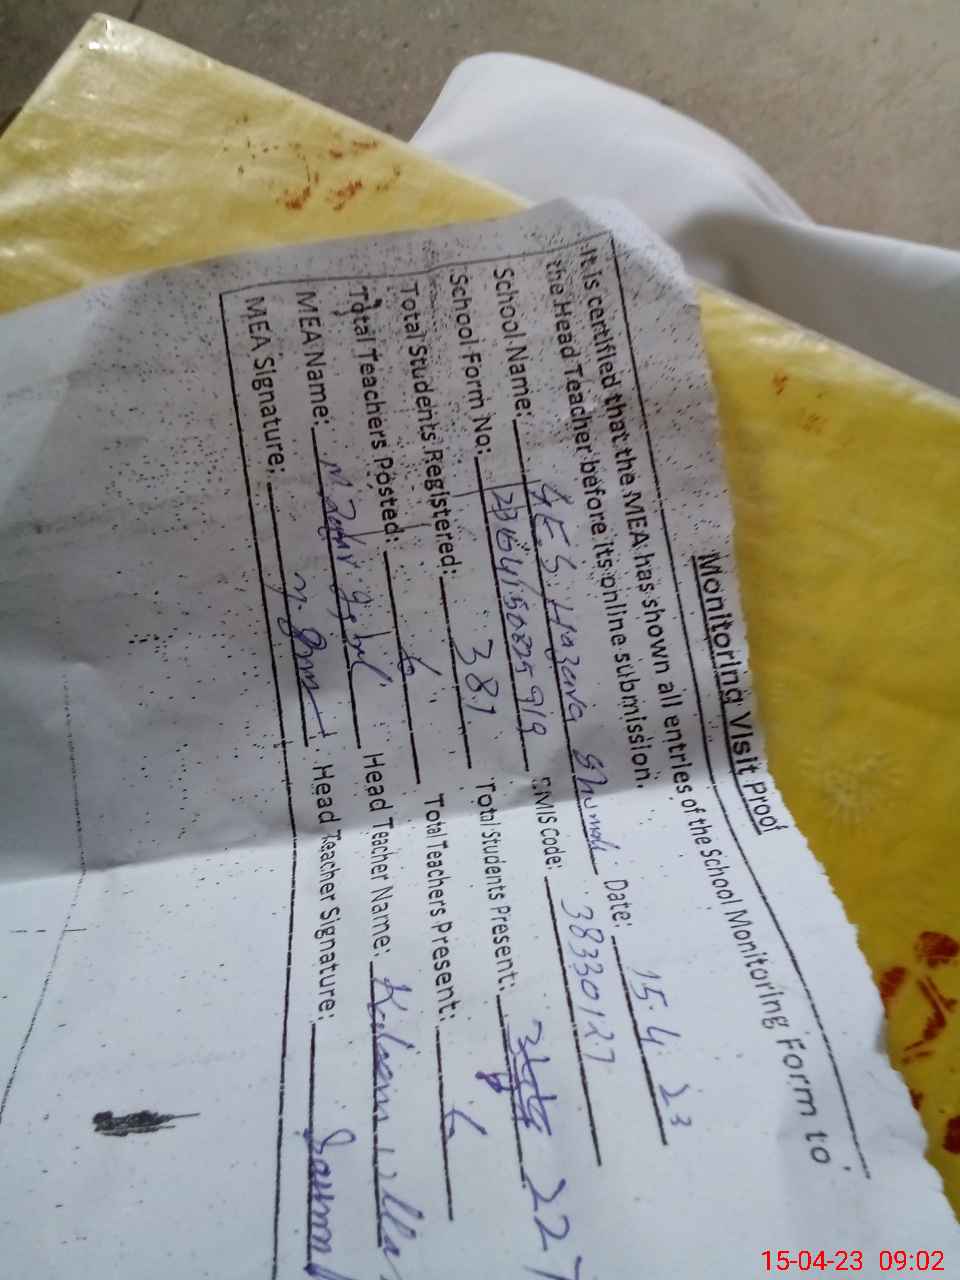 Monitoring Visit Proof
It is certified that the MEA has shown all entries of the School Monitoring Form to
the Head Teacher before its online submission.
School Name: G.E.S. Hazara Date: 15.4.23
School Form No: EMIS Code: 38330127
Total Students Registered: 381 Total Students Present: 227
Total Teachers Posted: 6 Total Teachers Present: 6
MEA Name: Head Teacher Name:
MEA Signature: Head Teacher Signature:
15-04-23 09:02